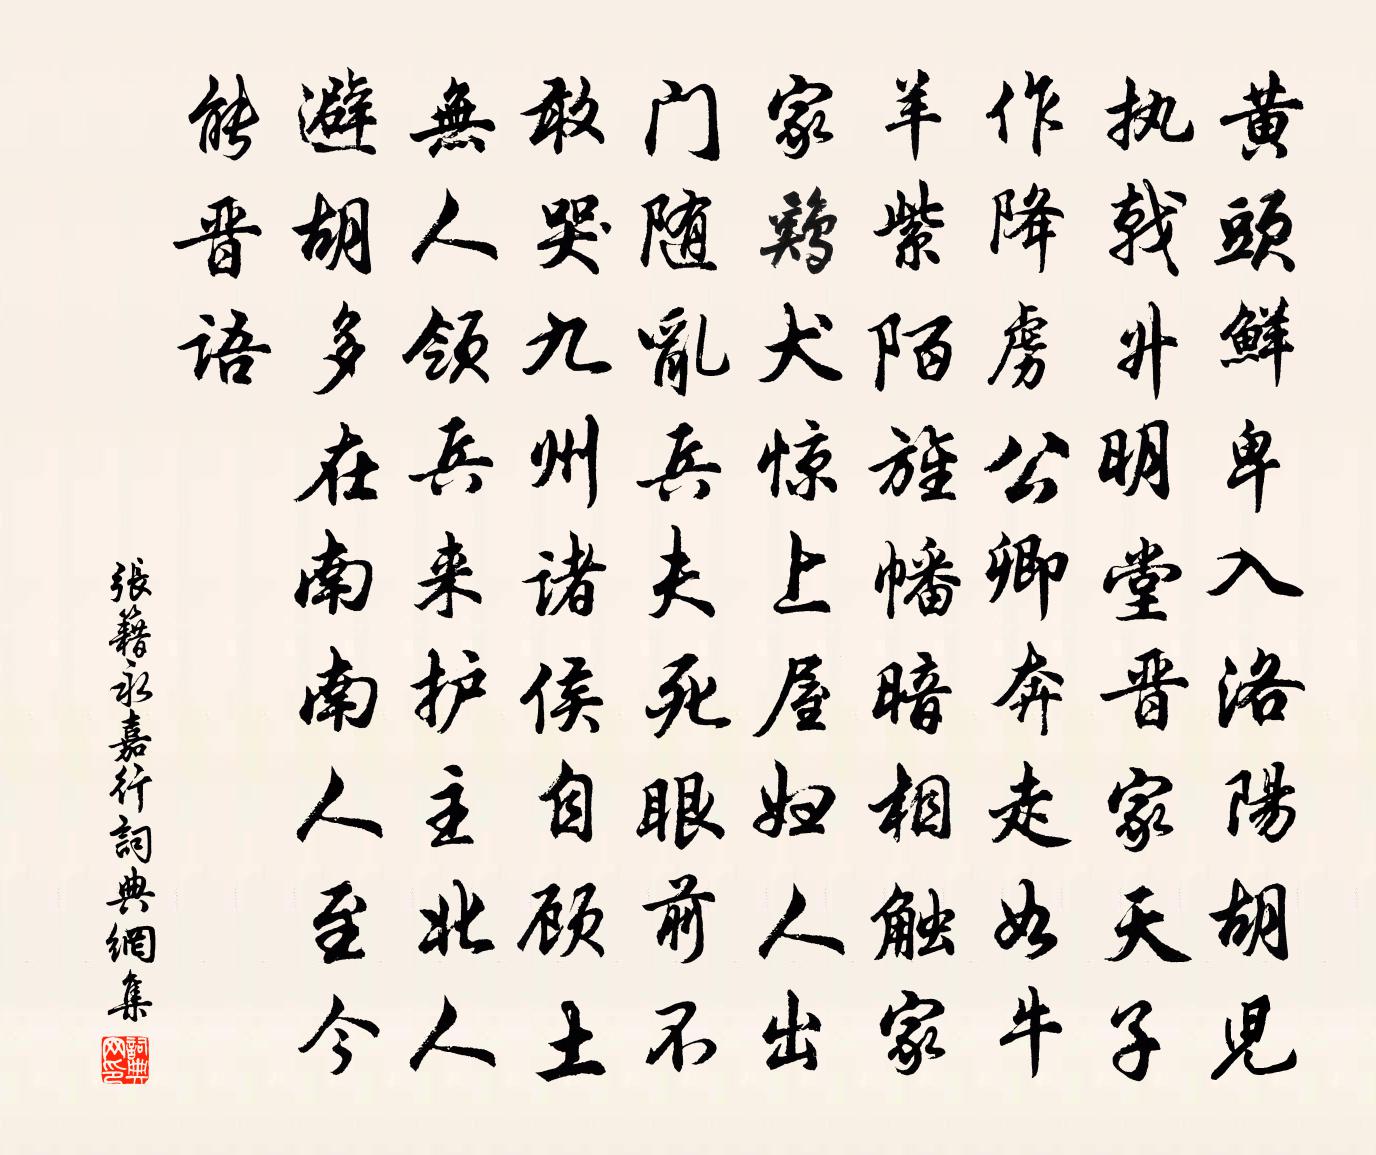 黄頭鮮卑入洛陽胡児
执戟升明堂晋家天子
作降虏公卿奔走如牛
羊紫陌旌幡暗相触家
家鶏犬惊上屋妇人出
门随亂兵夫死眼前不
敢哭九州诸侯自顾土
無人领兵来护主北人
避胡多在南南人至今
能晋语
張籍永嘉行詞典網集
詞典网印